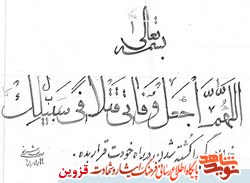 بسمه تعالی
اللهم اجعل وفاتی قتلا فی سبیلک
کشته شدن در راه خودت قرار بده.
نوید شاهد
پایگاه اطلاع رسانی فرهنگ ایثار و شهادت قزوین